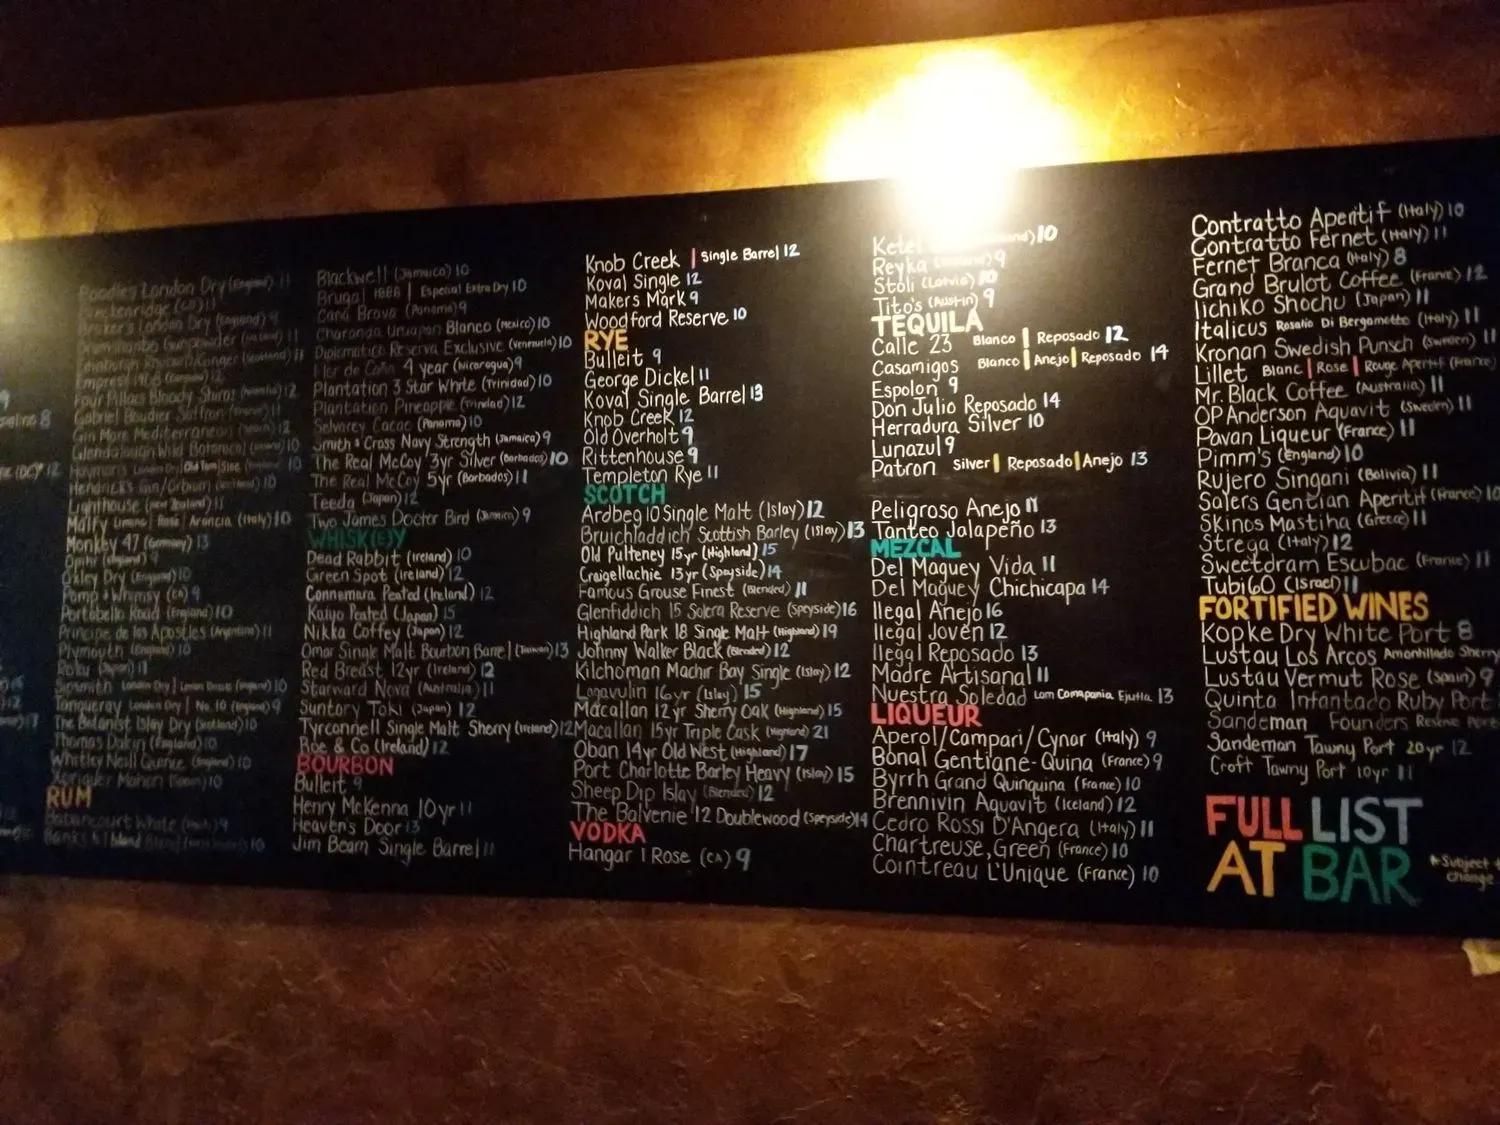 8
12
Boodles London Dry (England) 11
Breckenridge (CO) 11
London Dry (England) 9
Gunpowder
Empress 1908
Four Pillars Bloody Shiraz 12
Gabriel Boudier Saffron 11
Gin Mare Mediterranean 12
Glendalough Wild Botanical
London Dry | Old Tom | Sloe 10
Hendrick's Gin/Orbium 10
Lighthouse (New Zealand) 11
Malfy Limone | Rosa | Arancia (Italy) 10
Monkey 47 (Germany) 13
Opihr (England) 9
Oxley Dry (England) 10
Pomp & Whimsy (CA) 9
Portobello Road (England) 10
Principe de los Apostles (Argentina) 11
Plymouth (England) 10
Roku (Japan) 11
Sipsmith London Dry | (England) 10
Tanqueray London Dry | No. 10 (England) 9
The Botanist Islay Dry (Scotland) 10
Thomas Dakin (England) 10
Whitley Neill Quince (England) 10
Xoriguer Mahon (Spain) 10
RUM
White 9
Banks 5 Island Blend 10
Blackwell (Jamaica) 10
Brugal 1888 | Especial Extra Dry 10
Cana Brava (Panama) 9
Charanda Uruapan Blanco (Mexico) 10
Diplomatico Reserva Exclusive (Venezuela) 10
Flor de Caña 4 year (Nicaragua) 9
Plantation 3 Star White (Trinidad) 10
Plantation Pineapple (Trinidad) 12
Selvarey Cacao (Panama) 10
Smith & Cross Navy Strength (Jamaica) 9
The Real McCoy 3yr Silver (Barbados) 10
The Real McCoy 5yr (Barbados) 11
Teeda (Japan) 12
Two James Doctor Bird (Jamaica) 9
WHISK(E)Y
Dead Rabbit (Ireland) 10
Green Spot (Ireland) 12
Connemara Peated (Ireland) 12
Kaiyo Peated (Japan) 15
Nikka Coffey (Japan) 12
Omar Single Malt Bourbon Barrel (Taiwan) 13
Red Breast 12yr (Ireland) 12
Starward Nova (Australia) 11
Suntory Toki (Japan) 12
Tyrconnell Single Malt Sherry (Ireland) 12
Roe & Co (Ireland) 12
BOURBON
Bulleit 9
Henry McKenna 10yr 11
Heaven's Door 13
Jim Beam Single Barrel 11
Knob Creek | Single Barrel 12
Koval Single 12
Makers Mark 9
Woodford Reserve 10
RYE
Bulleit 9
George Dickel 11
Koval Single Barrel 13
Knob Creek 12
Old Overholt 9
Rittenhouse 9
Templeton Rye 11
SCOTCH
Ardbeg 10 Single Malt (Islay) 12
Bruichladdich Scottish Barley (Islay) 13
Old Pulteney 15yr (Highland) 15
Craigellachie 13yr (Speyside) 14
Famous Grouse Finest (Blended) 11
Glenfiddich 15 Solera Reserve (Speyside) 16
Highland Park 18 Single Malt (Highland) 19
Johnny Walker Black (Blended) 12
Kilchoman Machir Bay Single (Islay) 12
Lagavulin 16yr (Islay) 15
Macallan 12yr Sherry Oak (Highland) 15
Macallan 15yr Triple Cask (Highland) 21
Oban 14yr Old West (Highland) 17
Port Charlotte Barley Heavy (Islay) 15
Sheep Dip Islay (Blended) 12
The Balvenie 12 Doublewood (Speyside) 14
VODKA
Hangar 1 Rose (CA) 9
Ketel 10
Reyka 9
Stoli (Latvia) 10
Tito's (Austin) 9
TEQUILA
Calle 23 Blanco | Reposado 12
Casamigos Blanco | Anejo | Reposado 14
Espolon 9
Don Julio Reposado 14
Herradura Silver 10
Lunazul 9
Patron Silver | Reposado | Anejo 13
Peligroso Anejo 11
Tanteo Jalapeño 13
MEZCAL
Del Maguey Vida 11
Del Maguey Chichicapa 14
Ilegal Anejo 16
Ilegal Joven 12
Ilegal Reposado 13
Madre Artisanal 11
Nuestra Soledad Lam Compania Ejutla 13
LIQUEUR
Aperol/Campari/Cynar (Italy) 9
Bonal Gentiane-Quina (France) 9
Byrrh Grand Quinquina (France) 10
Brennivin Aquavit (Iceland) 12
Cedro Rossi D'Angera (Italy) 11
Chartreuse, Green (France) 10
Cointreau L'Unique (France) 10
Contratto Aperitif (Italy) 10
Contratto Fernet (Italy) 11
Fernet Branca (Italy) 8
Grand Brulot Coffee (France) 12
Iichiko Shochu (Japan) 11
Italicus Rosolio Di Bergamotto (Italy) 11
Kronan Swedish Punsch (Sweden) 11
Lillet Blanc | Rose | Rouge Aperitif (France)
Mr. Black Coffee (Australia) 11
OP Anderson Aquavit (Sweden) 11
Pavan Liqueur (France) 11
Pimm's (England) 10
Rujero Singani (Bolivia) 11
Salers Gentian Aperitif (France) 10
Skinos Mastiha (Greece) 11
Strega (Italy) 12
Sweetdram Escubac (France) 11
Tubi60 (Israel) 11
FORTIFIED WINES
Kopke Dry White Port 8
Lustau Los Arcos Amontillado Sherry
Lustau Vermut Rose (Spain) 9
Quinta Infantado Ruby Port
Sandeman Founders Reserve
Sandeman Tawny Port 20yr 12
Croft Tawny Port 10yr 11
FULL LIST
AT BAR
*Subject
change